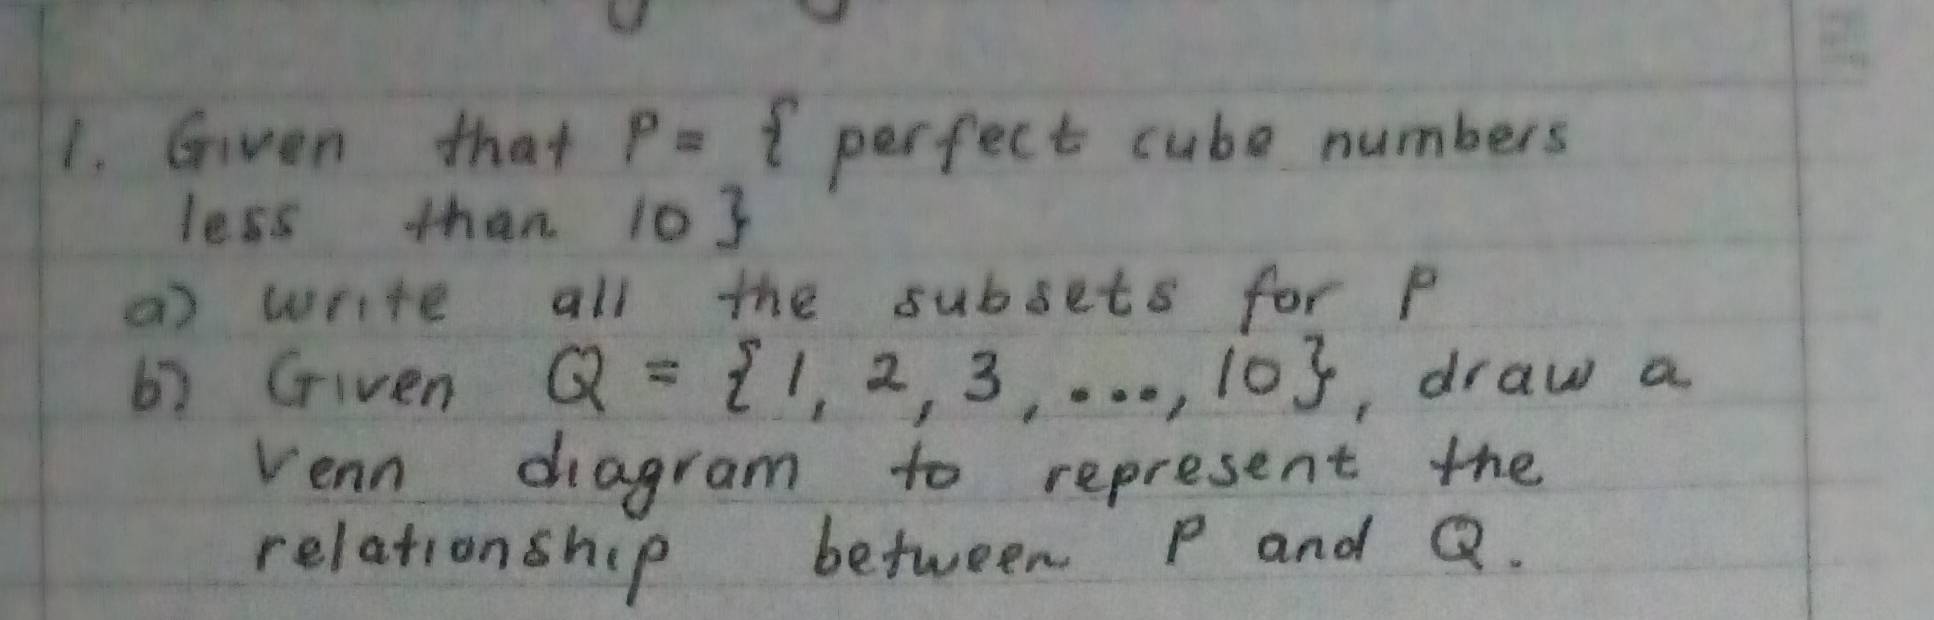 1. Given that P = { perfect cube numbers
less than 10 }
a) write all the subsets for P
b) Given Q = {1, 2, 3, ..., 10}, draw a
Venn diagram to represent the
relationship between P and Q.